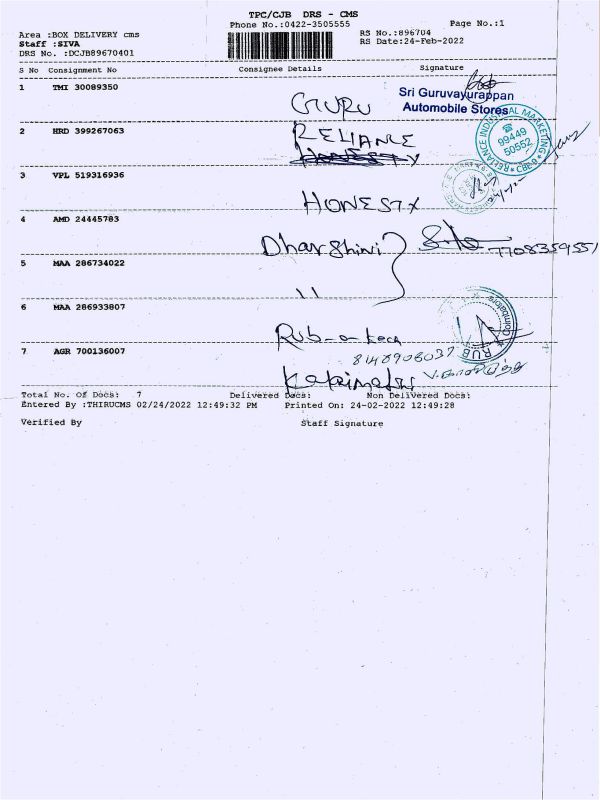 TPC/CJB DRS - CMS
Phone No.:0422-3505555
Page No.:1
Area :BOX DELIVERY cms
RS No.:896704
Staff :SIVA
RS Date:24-Feb-2022
DRS No. :DCJB89670401
S No Consignment No Consignee Details Signature
1 TMI 30089350
GURU
Sri Guruvayurappan
Automobile Stores
2 HRD 399267063
RELIANCE
RELIANCE INDUSTRIAL MARKETING
99449
50552
CBE-9
3 VPL 519316936
HONESTY
4 AMD 24445783
Dharshini
7708359551
5 MAA 286734022
11
6 MAA 286933807
Rub-a-
Coimbatore
RUB
8148908037
7 AGR 700136007
Total No. Of Docs: 7 Delivered Docs: Non Delivered Docs:
Entered By :THIRUCMS 02/24/2022 12:49:32 PM Printed On: 24-02-2022 12:49:28
Verified By Staff Signature